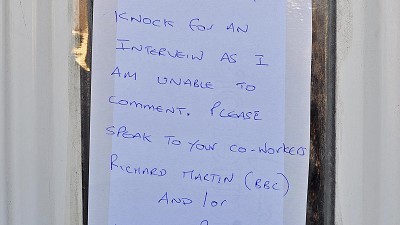 KNOCK FOR AN
INTERVEIW AS I
AM UNABLE TO
COMMENT. PLEASE
SPEAK TO YOUR CO-WORKERS
RICHARD MARTIN (BBC)
AND/OR